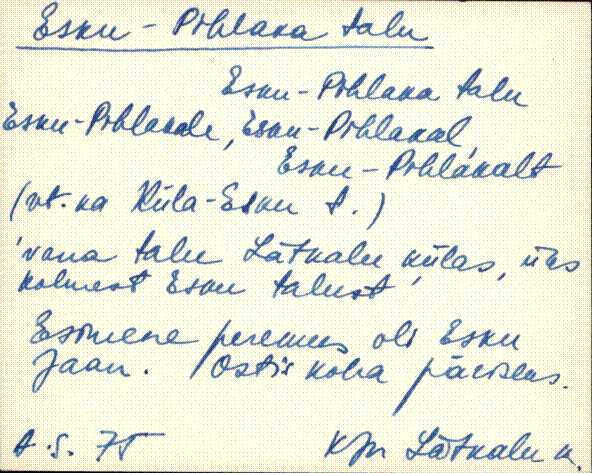 Esku-Pohlaka talu
Esku-Pohlaka talu
Esku-Pohlakale, Esku-Pohlakal,
Esku-Pohlakalt
(vt. ka Küla-Esku t.)
'vana talu Lätkalu külas, üks
kolmest Esku talust'
Esimene peremees oli Esku
Jaan. Ostis koha päriseks.
A.S. 75
KJn Lätkalu k.